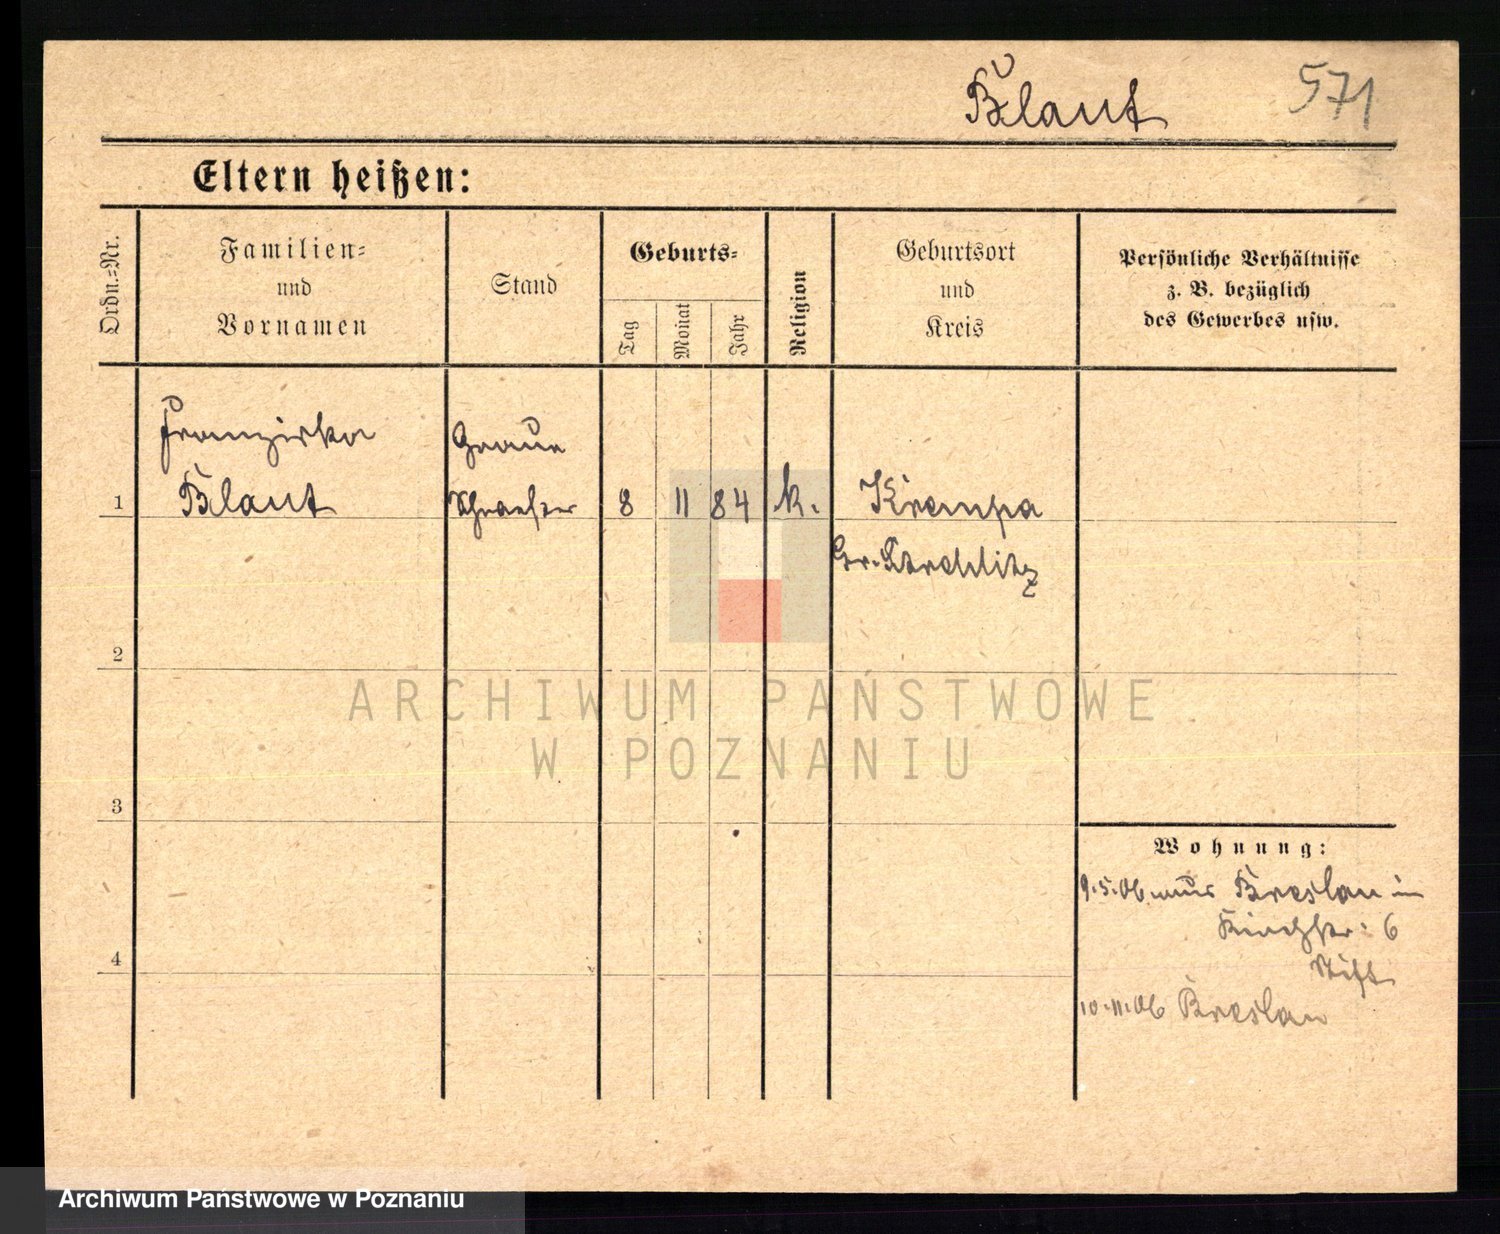 Blaut 571
Eltern heißen:
Ordn.=Nr.
Familien=
und
Vornamen
Stand
Geburts=
Tag
Monat
Jahr
Religion
Geburtsort
und
Kreis
Persönliche Verhältnisse
z. B. bezüglich
des Gewerbes usw.
Franziska
Graue
1 Blaut Schwester 8 11 84 k. Krempa
Gr. Strehlitz
2
3
4
Wohnung:
9.5.06 aus Breslau in
Kirchstr: 6
Stift
10.11.06 Breslau
ARCHIWUM PAŃSTWOWE
W POZNANIU
Archiwum Państwowe w Poznaniu